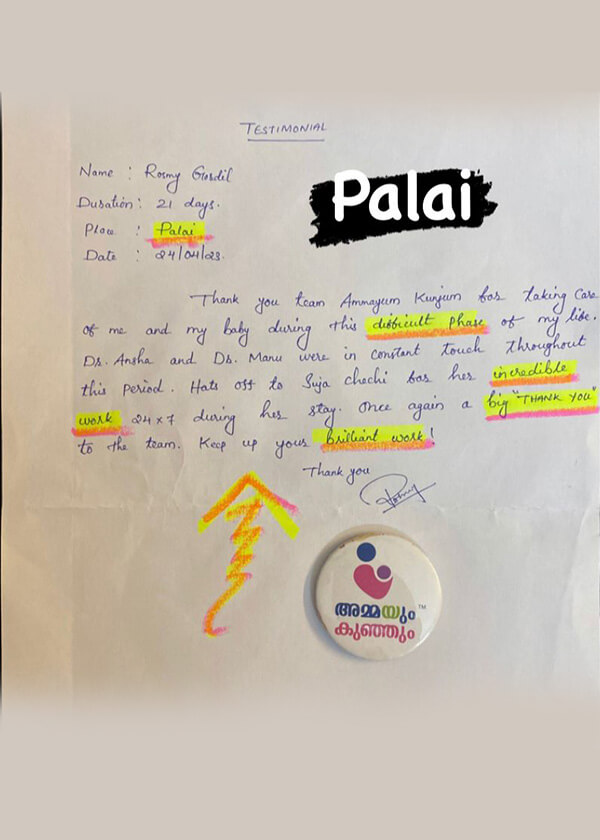 TESTIMONIAL
Name : Rosmy
Duration : 21 days.
Palai
Place : Palai
Date : 24/04/23.
Thank you team Ammayum Kunjum for taking care
of me and my baby during this difficult phase of my life.
Dr. Ansha and Dr. Manu were in constant touch throughout
this period. Hats off to Suja chechi for her incredible
work 24x7 during her stay. Once again a big "THANK YOU"
to the team. Keep up your brilliant work!
Thank you
Rosmy
അമ്മയും TM
കുഞ്ഞും